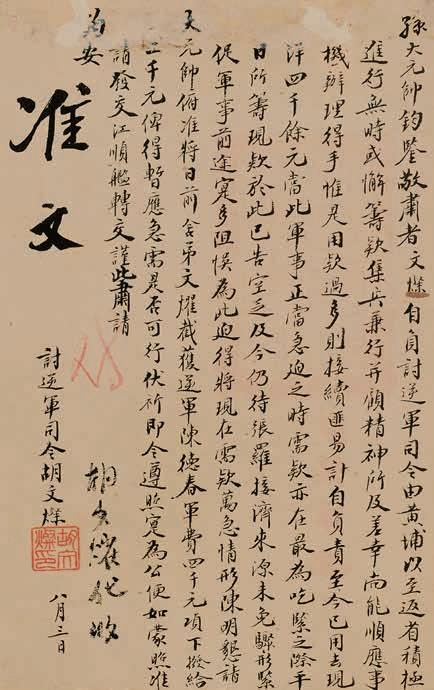 孫大元帥鈞鑒敬肅者文燦自負討逆軍司令由黃埔以至返省積極
進行無時或懈籌款集兵兼行并顧精神所及差幸尚能順應事
機辦理得手惟是用款過多則接續匪易計自負責至今已用去現
洋四千餘元當此軍事正當急迫之時需款亦在最為吃緊之際乎
日所籌現款於此已告空乏及今仍待張羅接濟來源未免驟形緊
促軍事前途寔多阻悞為此迫得將現在需款萬急情形陳明懇請
大元帥俯准將日前舍弟文燿截獲逆軍陳德春軍費四千元項下撥給
二千元俾得暫應急需是否可行伏祈即令遵照寔為公便如蒙照准
請發交江順艦轉交謹此肅請
勛安
准
文
討逆軍司令胡文燦
胡文燿代收
八月三日